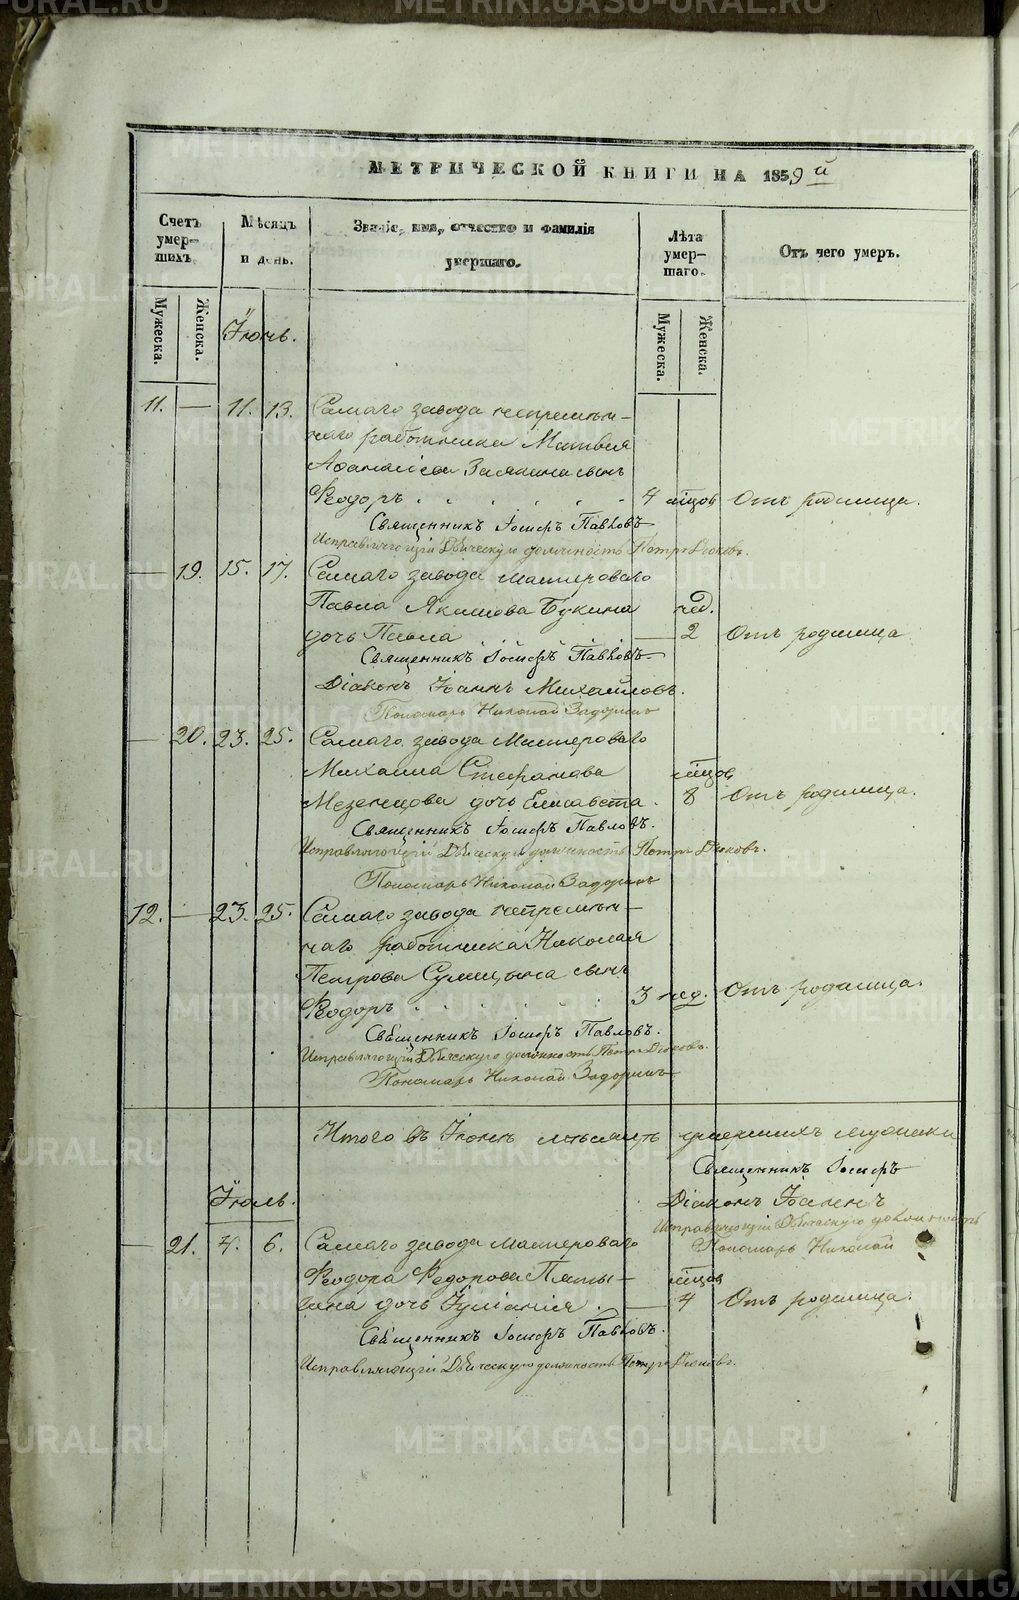 METRIKI.GASO-URAL.RU
МЕТРИЧЕСКОЙ КНИГИ НА 1859й
Счетъ умер-
шихъ.
Мѣсяцъ
и день.
Званіе, имя, отчество и фамилія
умершаго.
Лѣта
умер-
шаго.
Отъ чего умеръ.
Мужеска.
Женска.
Мужеска.
Женска.
Іюнь.
11. — 11. 13. Самаго завода непремѣн-
наго работника Матвѣя
Афанасіева сынъ
Ѳеодоръ 4 мѣцов Отъ родимца.
Священникъ Іосифъ Павловъ
Исправляющій Дьяческую должность Петръ
— 19. 15. 17. Самаго завода мастероваго
Павла Якимова Букина нед.
дочь Павла — 2 Отъ родимца
Священникъ Іосифъ Павловъ
Діаконъ Іоаннъ Михайловъ.
Пономарь Николай Задоринъ
— 20. 23. 25. Самаго завода Мастероваго
Михаила Стефанова мѣцов
Мезенцова дочь Елисавета. 8 Отъ родимца.
Священникъ Іосифъ Павловъ.
Исправляющій Дьяческую должность Петръ
Пономарь Николай Задоринъ
12. — 23. 25. Самаго завода непремѣн-
наго работника Николая
Петрова сынъ
Ѳеодоръ 3 нед. Отъ родимца.
Священникъ Іосифъ Павловъ.
Исправляющій Дьяческую должность Петръ
Пономарь Николай Задоринъ
Итого въ Іюнѣ мѣсяцѣ умершихъ мужеска
Священникъ Іосифъ
Діаконъ Іоаннъ
Исправляющій Дьяческую должность
Пономарь Николай
Іюль.
— 21. 4. 6. Самаго завода мастероваго
Ѳеодора Ѳедорова мѣцов
дочь Іуліанія. — 4 Отъ родимца.
Священникъ Іосифъ Павловъ.
Исправляющій Дьяческую должность Петръ